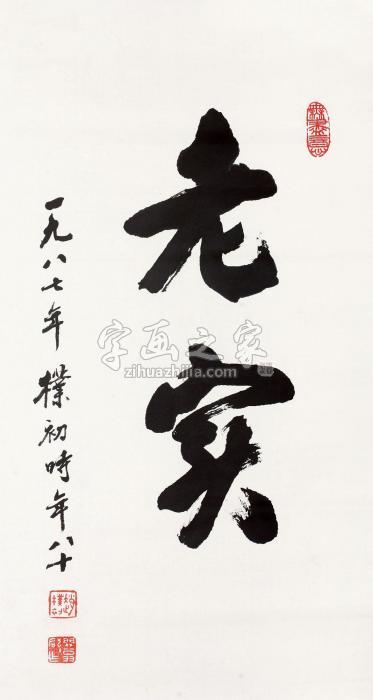 老实
一九八七年 樸初時年八十
字画之家
www.zihuazhijia.com